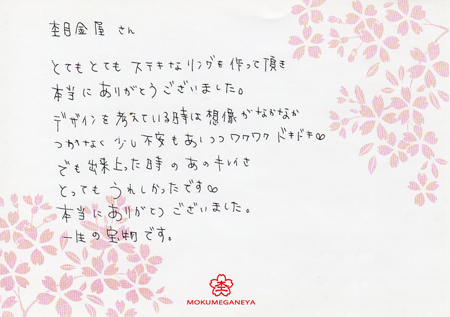 杢目金屋 さん
とてもとても ステキなリングを作って頂き
本当に ありがとうございました。
デザインを 考えている時は 想像が なかなか
つかなく 少し不安もありつつ ワクワク ドキドキ♡
でも 出来上った時の あのキレイさ
とっても うれしかったです♡
本当に ありがとう ございました。
一生の宝物です。
MOKUMEGANEYA